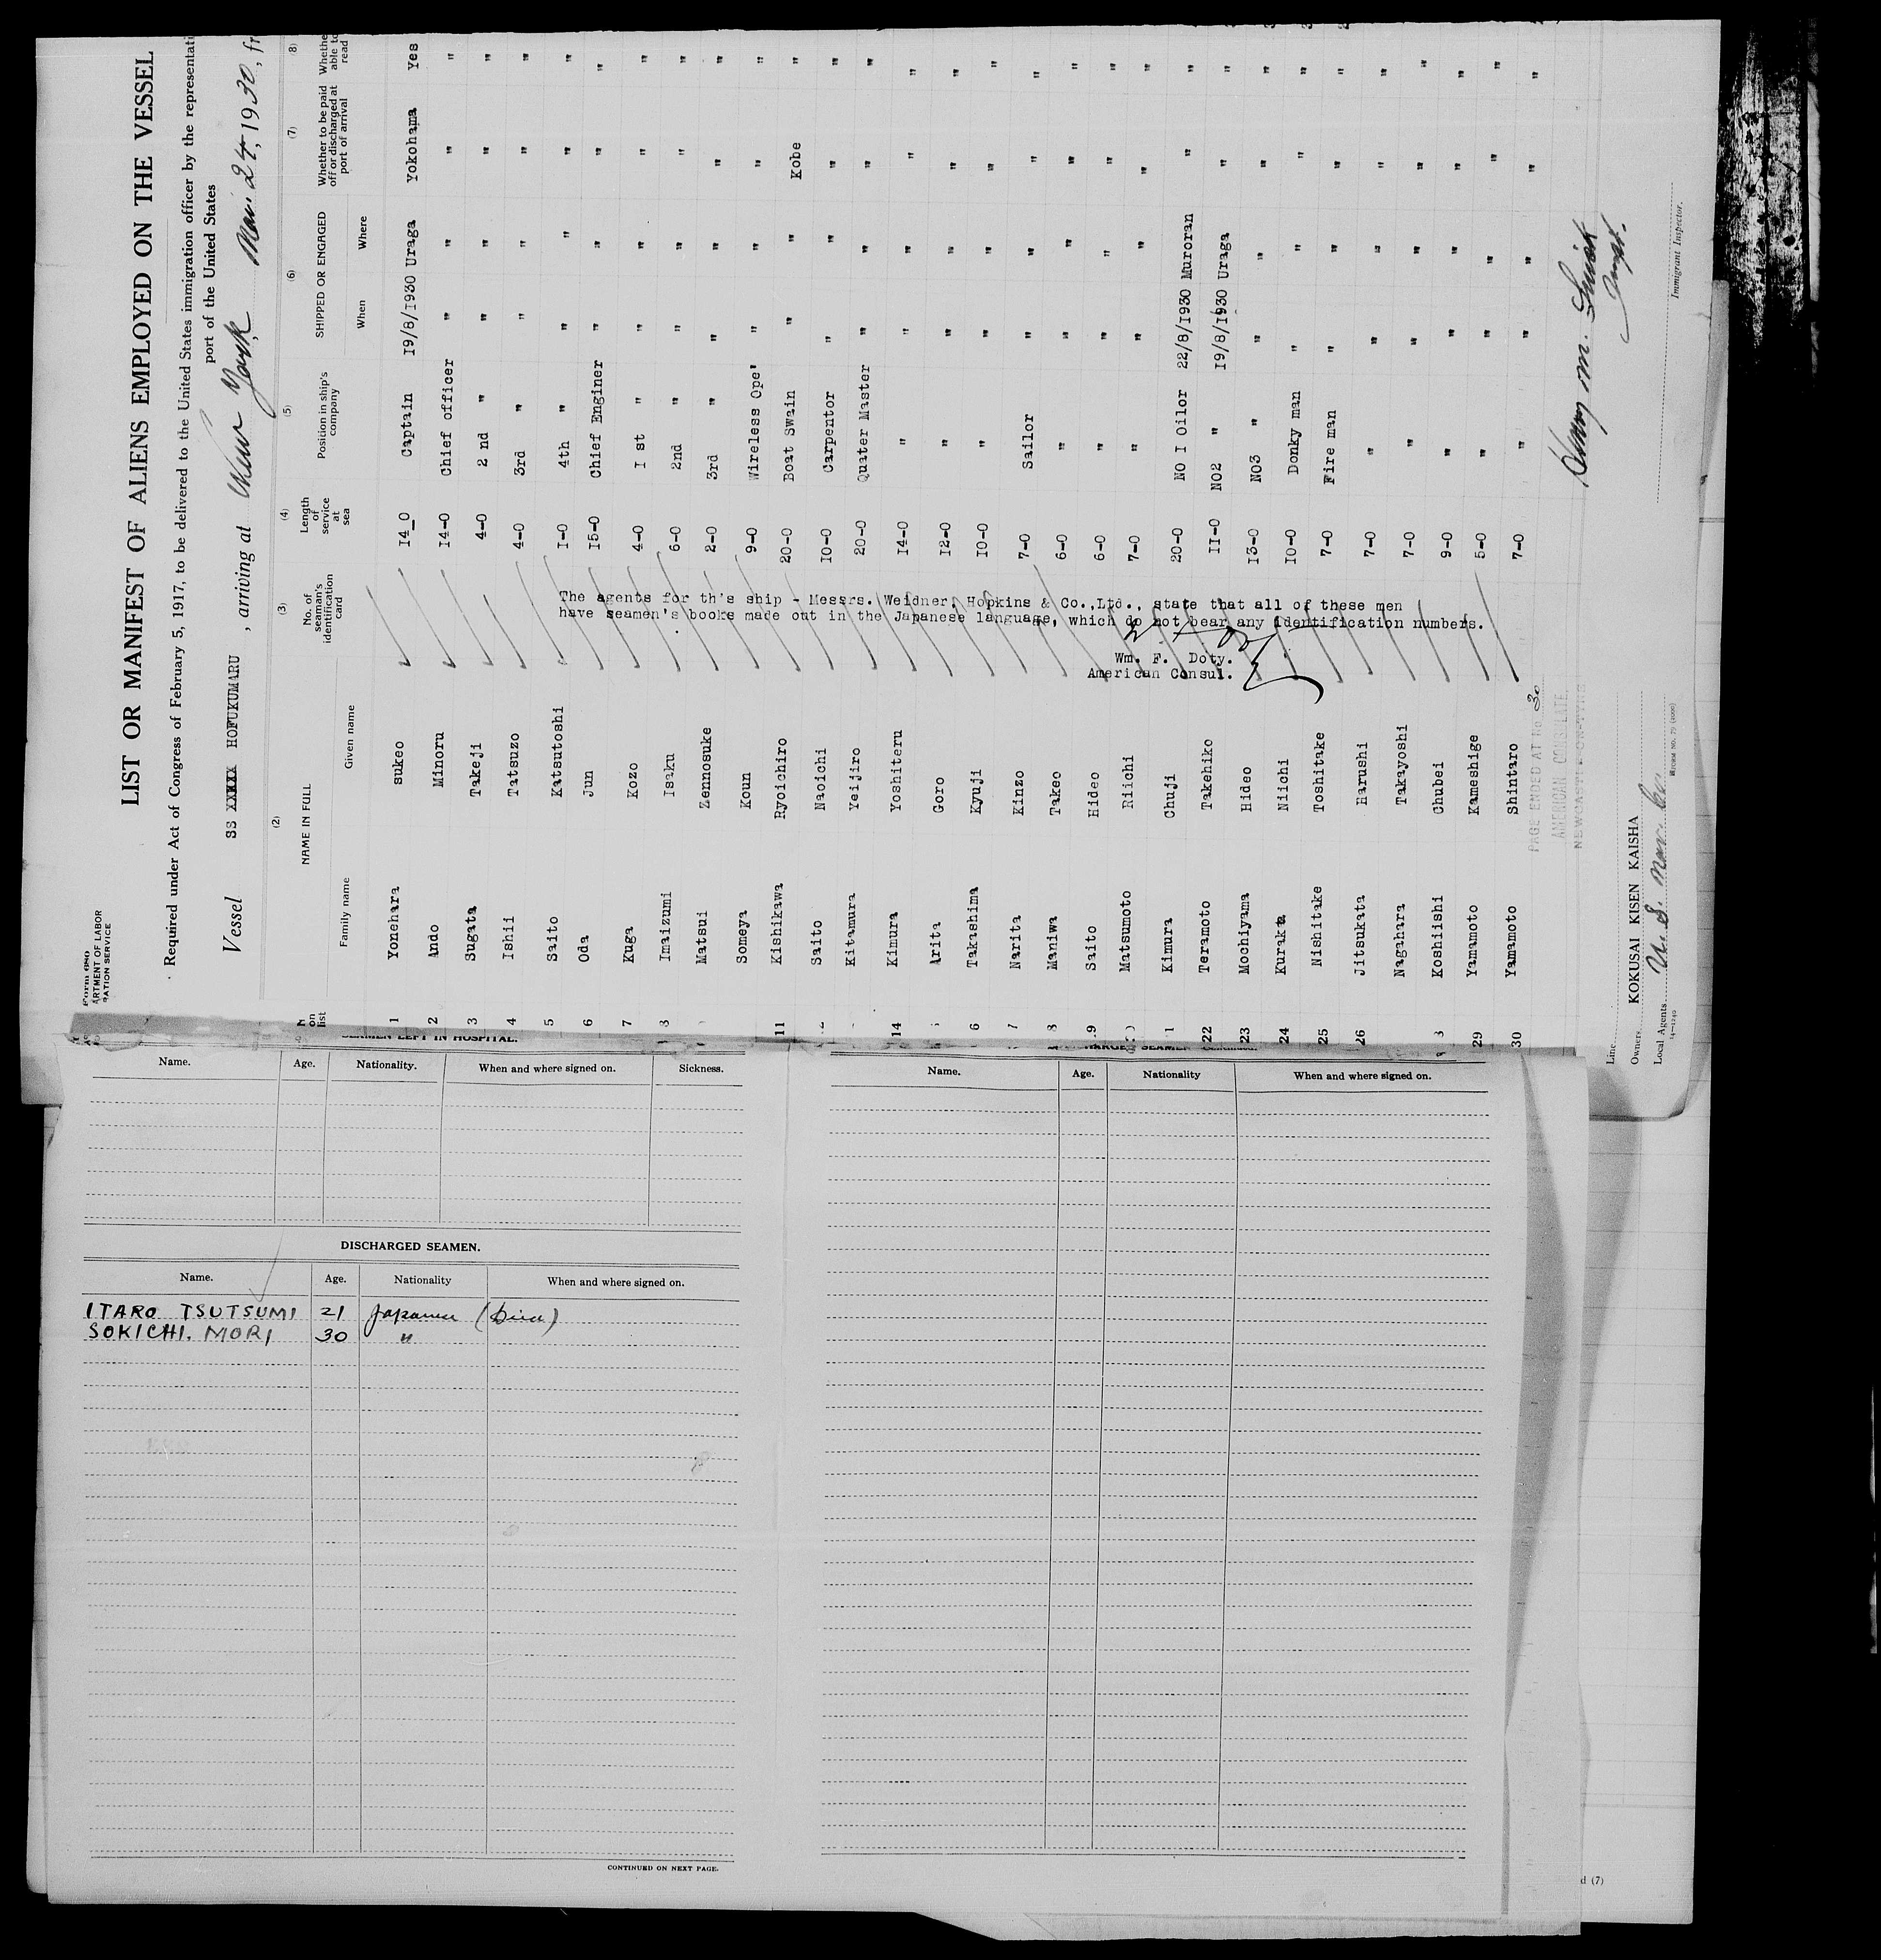 Form 680
ARTMENT OF LABOR
RATION SERVICE
LIST OR MANIFEST OF ALIENS EMPLOYED ON THE VESSEL
Required under Act of Congress of February 5, 1917, to be delivered to the United States immigration officer by the representati
port of the United States
Vessel SS HOFUKUMARU, arriving at New York, Nov. 24, 1930, fr
(2) (3) (4) (5) (6) (7) (8)
on list
NAME IN FULL
Family name Given name
No. of seaman's identification card
Length of service at sea
Position in ship's company
SHIPPED OR ENGAGED
When Where
Whether to be paid off or discharged at port of arrival
Whethe able to read
1 Yonehara sukeo 14_0 Captain 19/8/1930 Uraga Yokohama Yes
2 Ando Minoru 14-0 Chief officer " " " "
3 Sugata Takeji 4-0 2 nd " " " " "
4 Ishii Tatsuzo 4-0 3rd " " " " "
5 Saito Katsutoshi 1-0 4th " " " " "
6 Oda Jun 15-0 Chief Enginer " " " "
7 Kuga Kozo 4-0 I st " " " " "
8 Imaizumi Isaku 6-0 2nd " " " " "
Matsui Zennosuke 2-0 3rd " " " " "
Someya Koun 9-0 Wireless Ope' " " " "
11 Kishikawa Ryoichiro 20-0 Boat Swain " " Kobe "
Saito Naoichi 10-0 Carpentor " " " "
Kitamura Yeijiro 20-0 Quater Master " " " "
14 Kimura Yoshiteru 14-0 " " " " "
Arita Goro 12-0 " " " " "
6 Takashima Kyuji 10-0 " " " " "
7 Narita Kinzo 7-0 Sailor " " " "
8 Maniwa Takeo 6-0 " " " " "
19 Saito Hideo 6-0 " " " " "
Matsumoto Riichi 7-0 " " " " "
1 Kimura Chuji 20-0 NO I Oilor 22/8/1930 Muroran " "
22 Teramoto Takehiko 11-0 NO2 " 19/8/1930 Uraga " "
23 Mochiyama Hideo 13-0 NO3 " " " " "
24 Kurakta Niichi 10-0 Donky man " " " "
25 Nishitake Toshitake 7-0 Fire man " " " "
26 Jitsukata Harushi 7-0 " " " " "
Nagahara Takayoshi 7-0 " " " " "
8 Koshiishi Chubei 9-0 " " " " "
29 Yamamoto Kameshige 5-0 " " " " "
30 Yamamoto Shintaro 7-0 " " " " "
The agents for th's ship - Messrs. Weidner, Hopkins & Co.,Ltd., state that all of these men
have seamen's books made out in the Japanese language, which do not bear any identification numbers.
Wm. F. Doty.
American Consul.
PAGE ENDED AT No 30
AMERICAN CONSULATE
Line
Owners KOKUSAI KISEN KAISHA
Local Agents
14-1240
Immigrant Inspector.
SEAMEN LEFT IN HOSPITAL.
Name. Age. Nationality. When and where signed on. Sickness.
DISCHARGED SEAMEN.
Name. Age. Nationality When and where signed on.
ITARO TSUTSUMI 21 Japanese (Died)
SOKICHI. MORI 30 "
CONTINUED ON NEXT PAGE.
Name. Age. Nationality When and where signed on.
d (7)